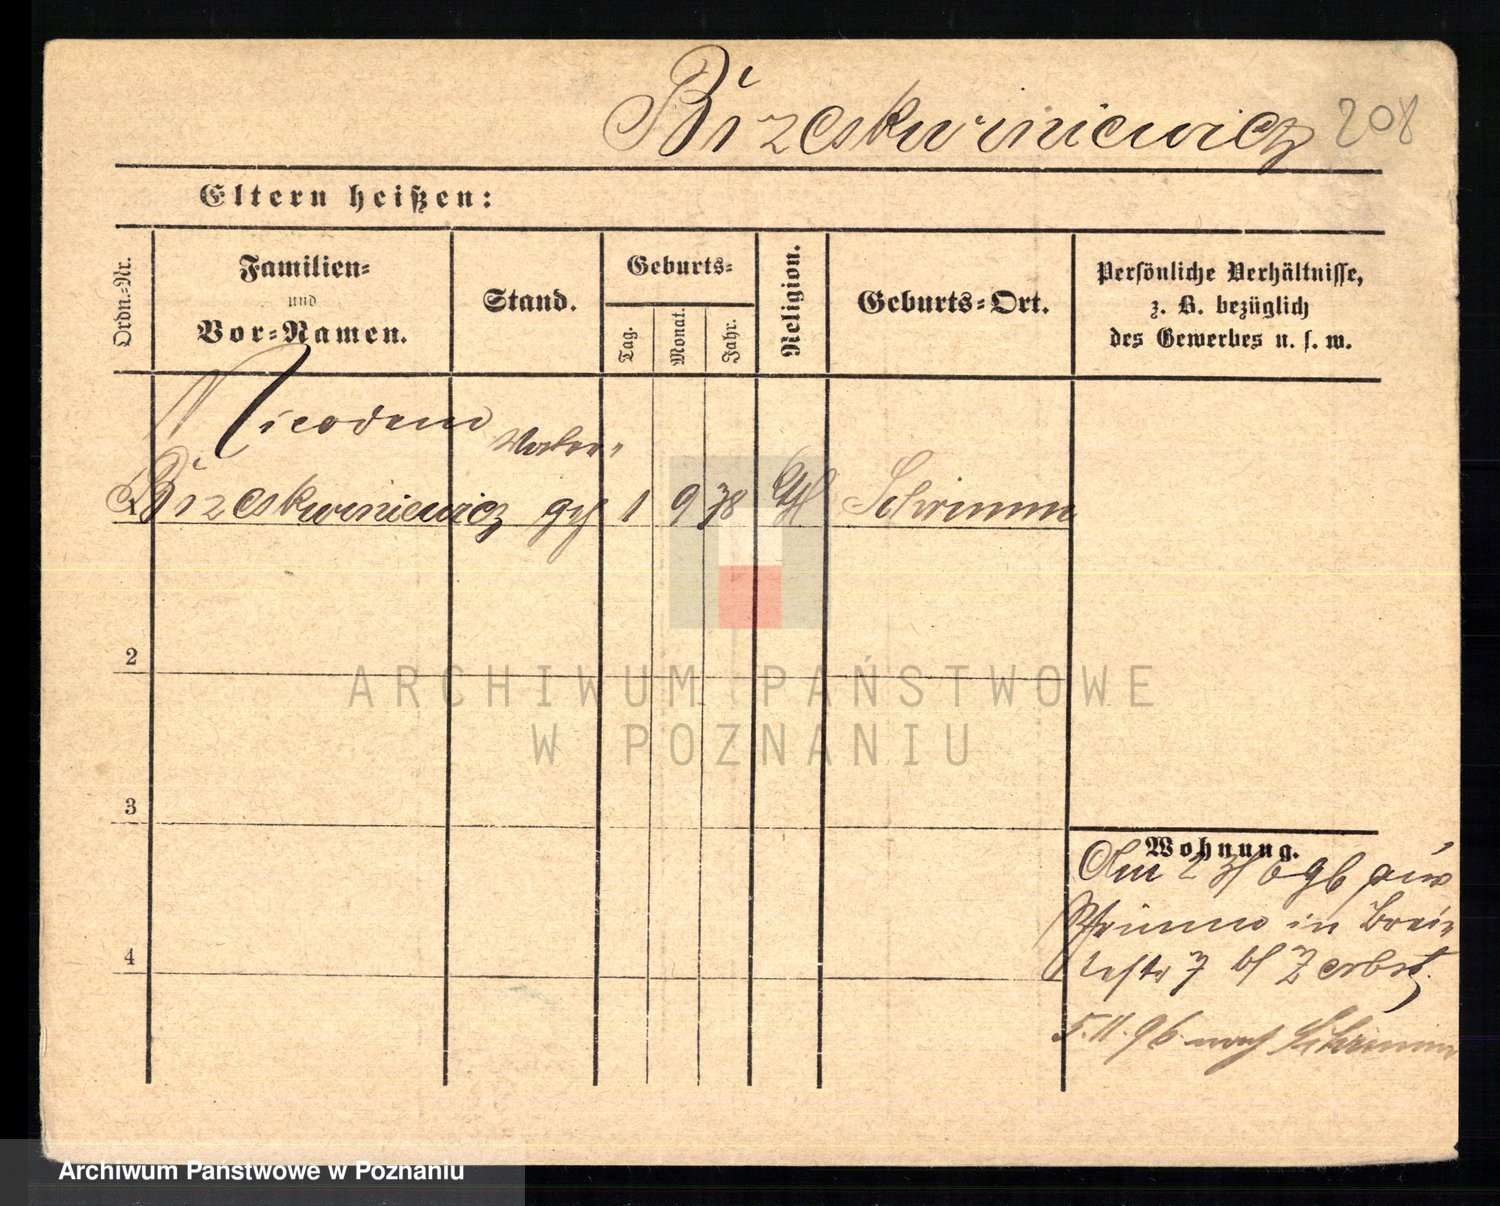 Brzeskwiniewicz 208
Eltern heißen:
Ordn.-Nr.
Familien-
und
Vor-Namen.
Stand.
Geburts-
Tag.
Monat.
Jahr.
Religion.
Geburts-Ort.
Persönliche Verhältnisse,
z. B. bezüglich
des Gewerbes u. s. w.
Nicodem
Brzeskwiniewicz 1 9 78 Schrimm
2
3
4
Wohnung.
Am 96 aus
Schrimm in Brei-
testr 7 bei Zerbst.
5.11.96 nach Schrimm
ARCHIWUM PAŃSTWOWE
W POZNANIU
Archiwum Państwowe w Poznaniu